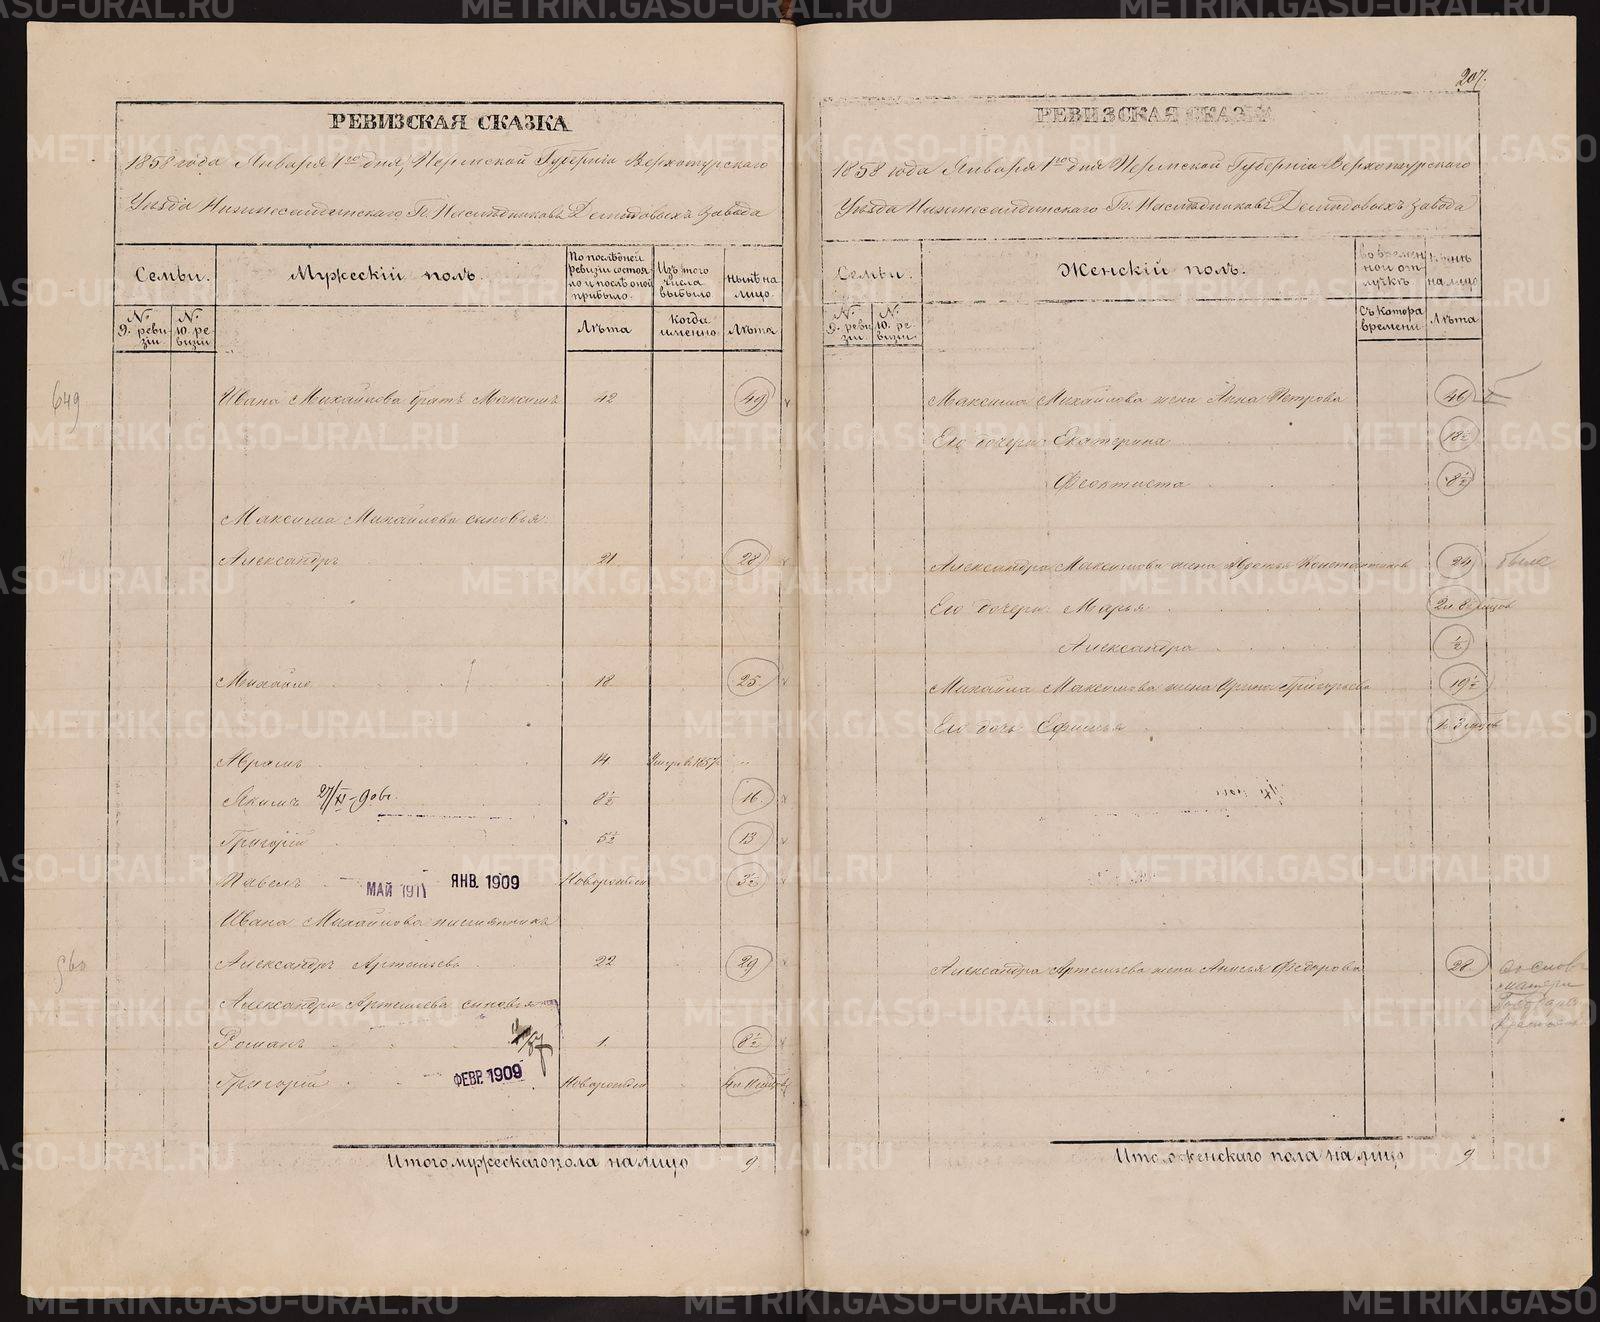 РЕВИЗСКАЯ СКАЗКА
1858 года Января 1го дня, Пермской Губерніи Верхотурскаго
Уѣзда Нижнесалдинскаго Гг. Наслѣдниковъ Демидовыхъ Завода
Семьи.
Мужескій полъ.
По послѣдней ревизіи состояло и послѣ оной прибыло.
Изъ того числа выбыло
нынѣ на лицо.
№ 9. ревизіи
№ 10. ревизіи
Лѣта
Когда именно
Лѣта
649
Ивана Михайлова братъ Максимъ 42 49
Максима Михайлова сыновья:
Александръ 21 28
Михайло 18 25
Абрамъ 14 Умеръ въ 1857
Якимъ 27/XI-90 8½ 16
Григорій 5½ 13
Павелъ МАЙ 1911 ЯНВ. 1909 Новорожден 3½
Ивана Михайлова племянникъ
Александръ Артемьевъ 22 29
Александра Артемьева сыновья
Романъ 1. 8½
Григорій ФЕВР. 1909 Новорожден 4л 11 мцовъ
Итого мужескаго пола на лицо 9
207.
РЕВИЗСКАЯ СКАЗКА
1858 года Января 1го дня Пермской Губерніи Верхотурскаго
Уѣзда Нижнесалдинскаго Гг. Наслѣдниковъ Демидовыхъ Завода
Семьи.
Женскій полъ.
во временной отлучкѣ
нынѣ на лицо
№ 9. ревизіи
№ 10. ревизіи
Съ котораго времени
Лѣта
Максима Михайлова жена Анна Петрова 46
Его дочери: Екатерина 18½
Феоктиста 8½
Александра Максимова жена Авдотья Константинова 24
Его дочери: Марья 2л 8 мцов
Александра ½
Михайла Максимова жена Ирина Григорьева 19½
Его дочь Ефимья 1г. 3 мцов
Александра Артемьева жена Анисья Федорова 28
Итого женскаго пола на лицо 9
METRIKI.GASO-URAL.RU